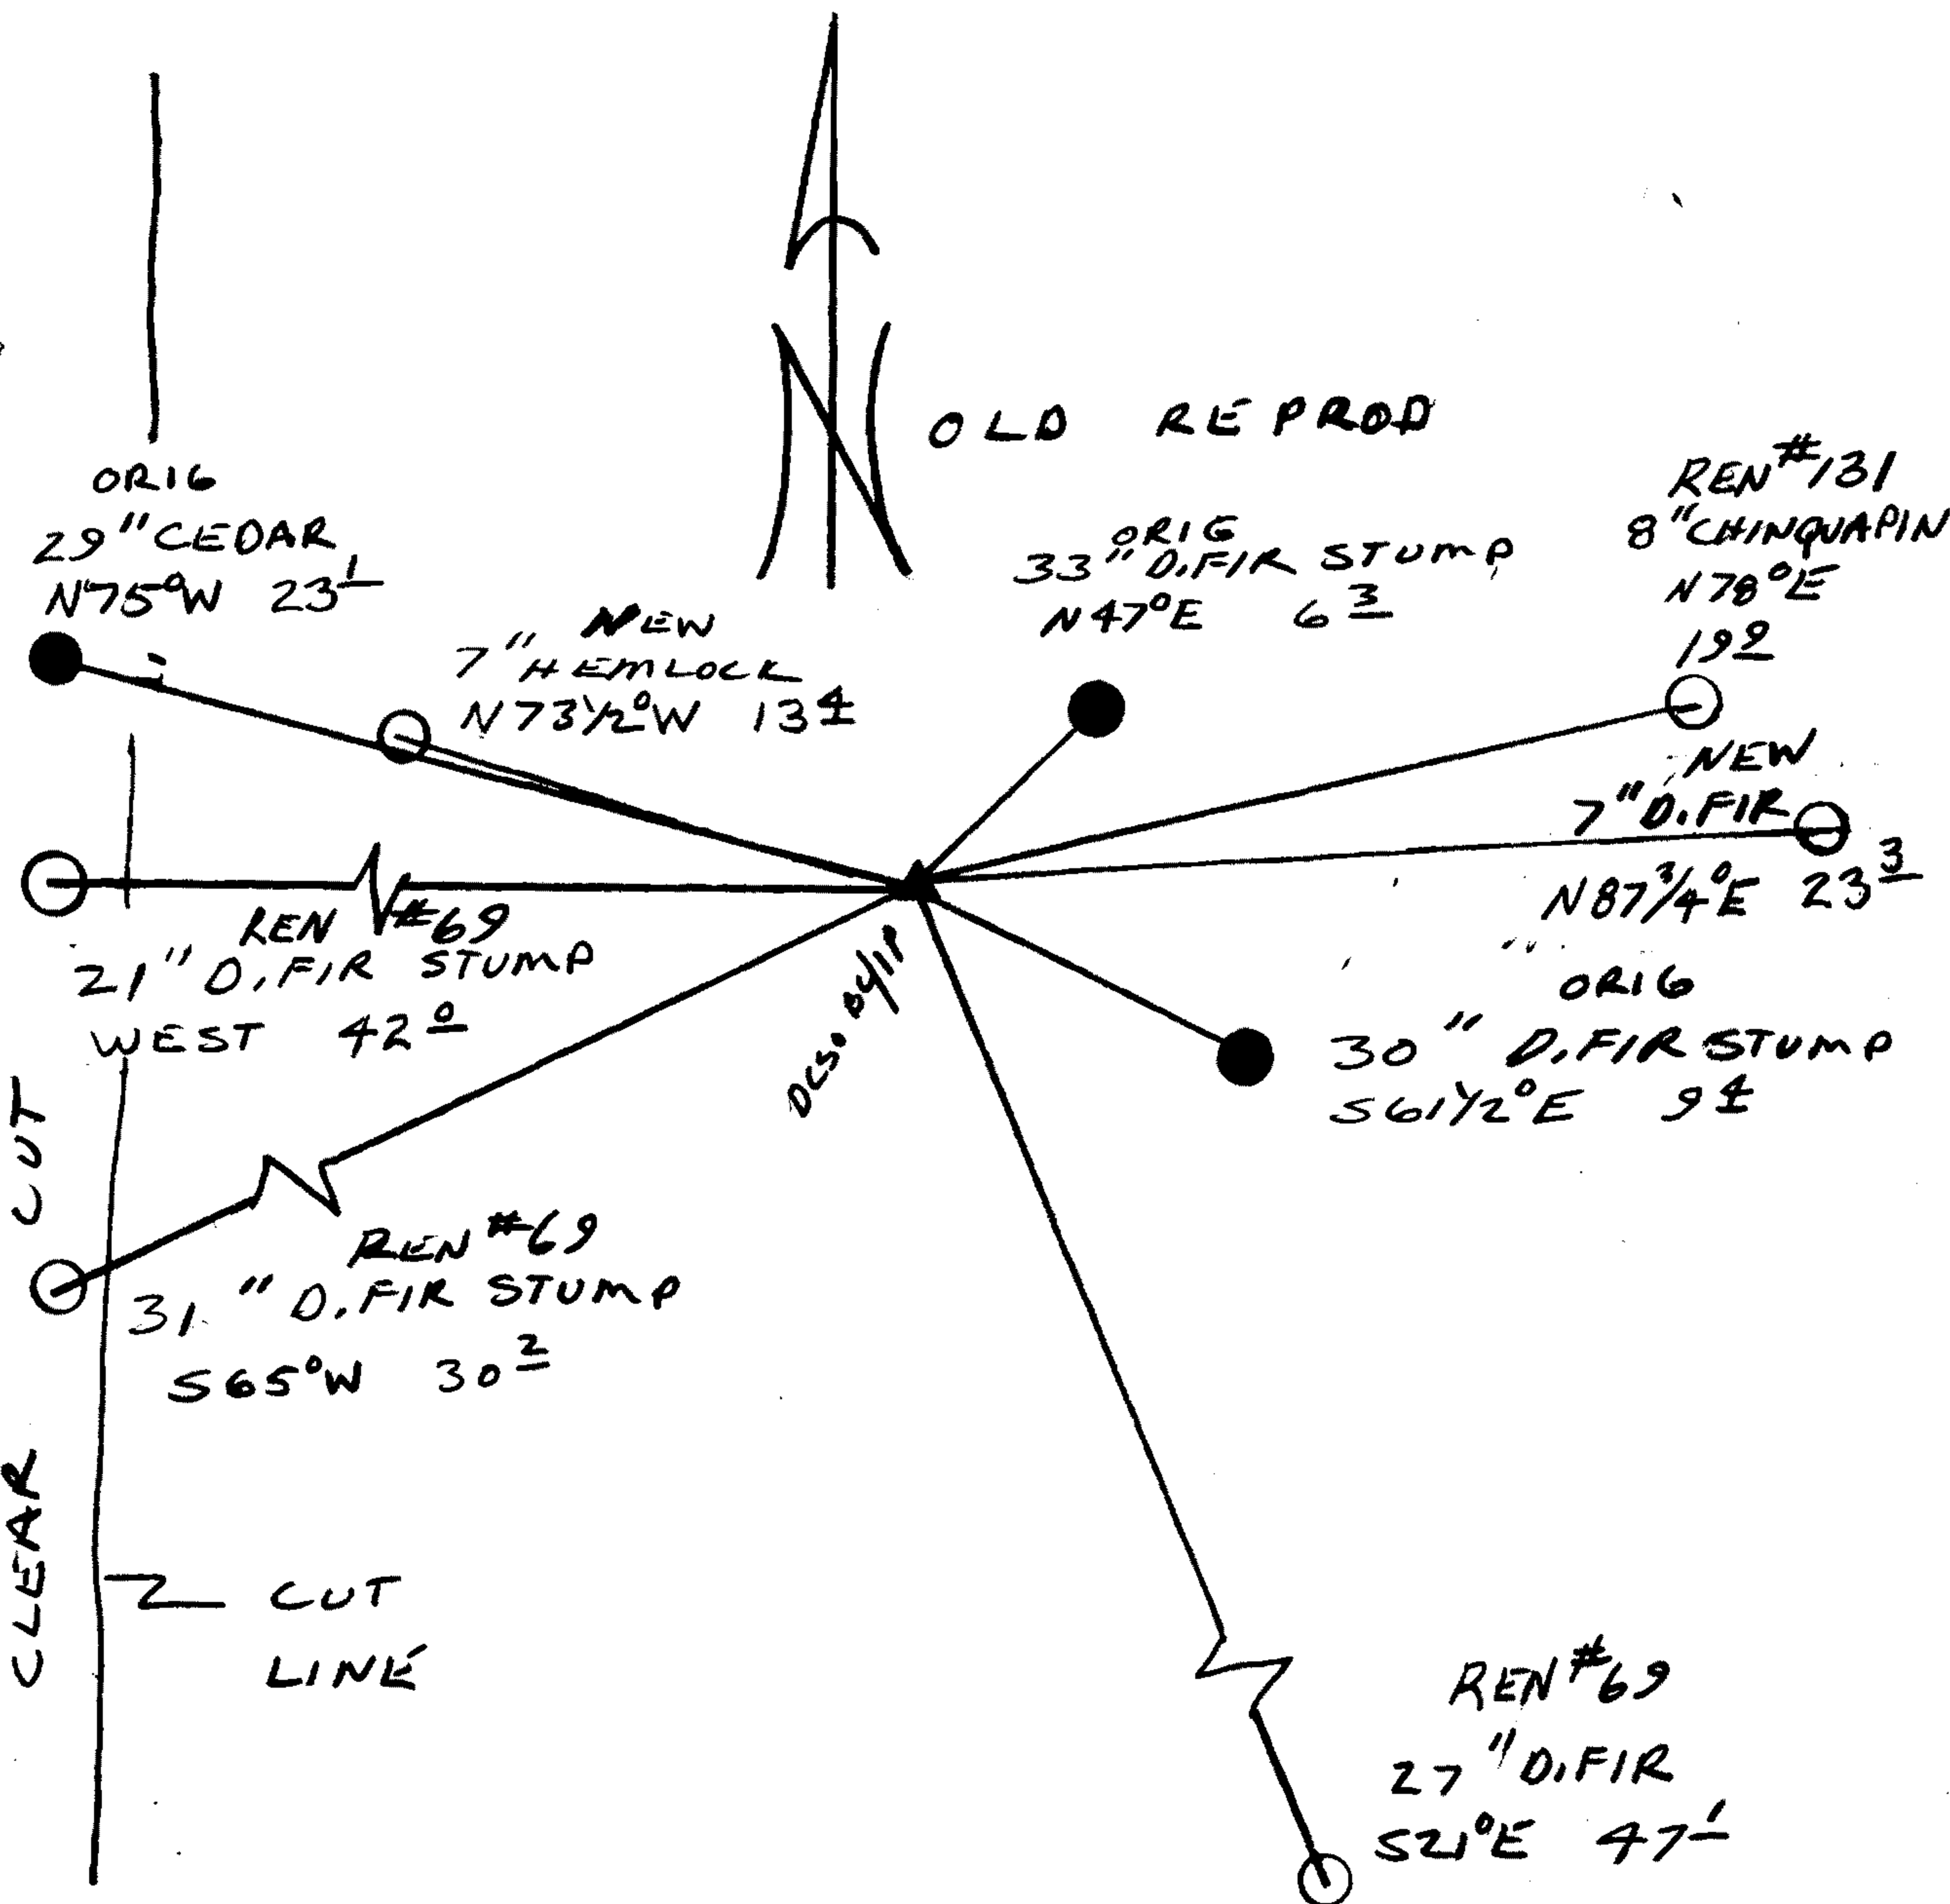 N
OLD REPROD
ORIG
29" CEDAR
N75°W 23<u>1</u>
NEW
7" HEMLOCK
N73½°W 13<u>4</u>
ORIG
33" D.FIR STUMP
N47°E 6<u>3</u>
REN #131
8" CHINQUAPIN
N78°E
19<u>0</u>
NEW
7" D.FIR
N87¾°E 23<u>3</u>
REN #69
21" D.FIR STUMP
WEST 42<u>0</u>
ORIG
30" D.FIR STUMP
S61½°E 9<u>4</u>
REN #69
31" D.FIR STUMP
S65°W 30<u>2</u>
CLEAR CUT
CUT
LINE
REN #69
27" D.FIR
S21°E 47<u>1</u>